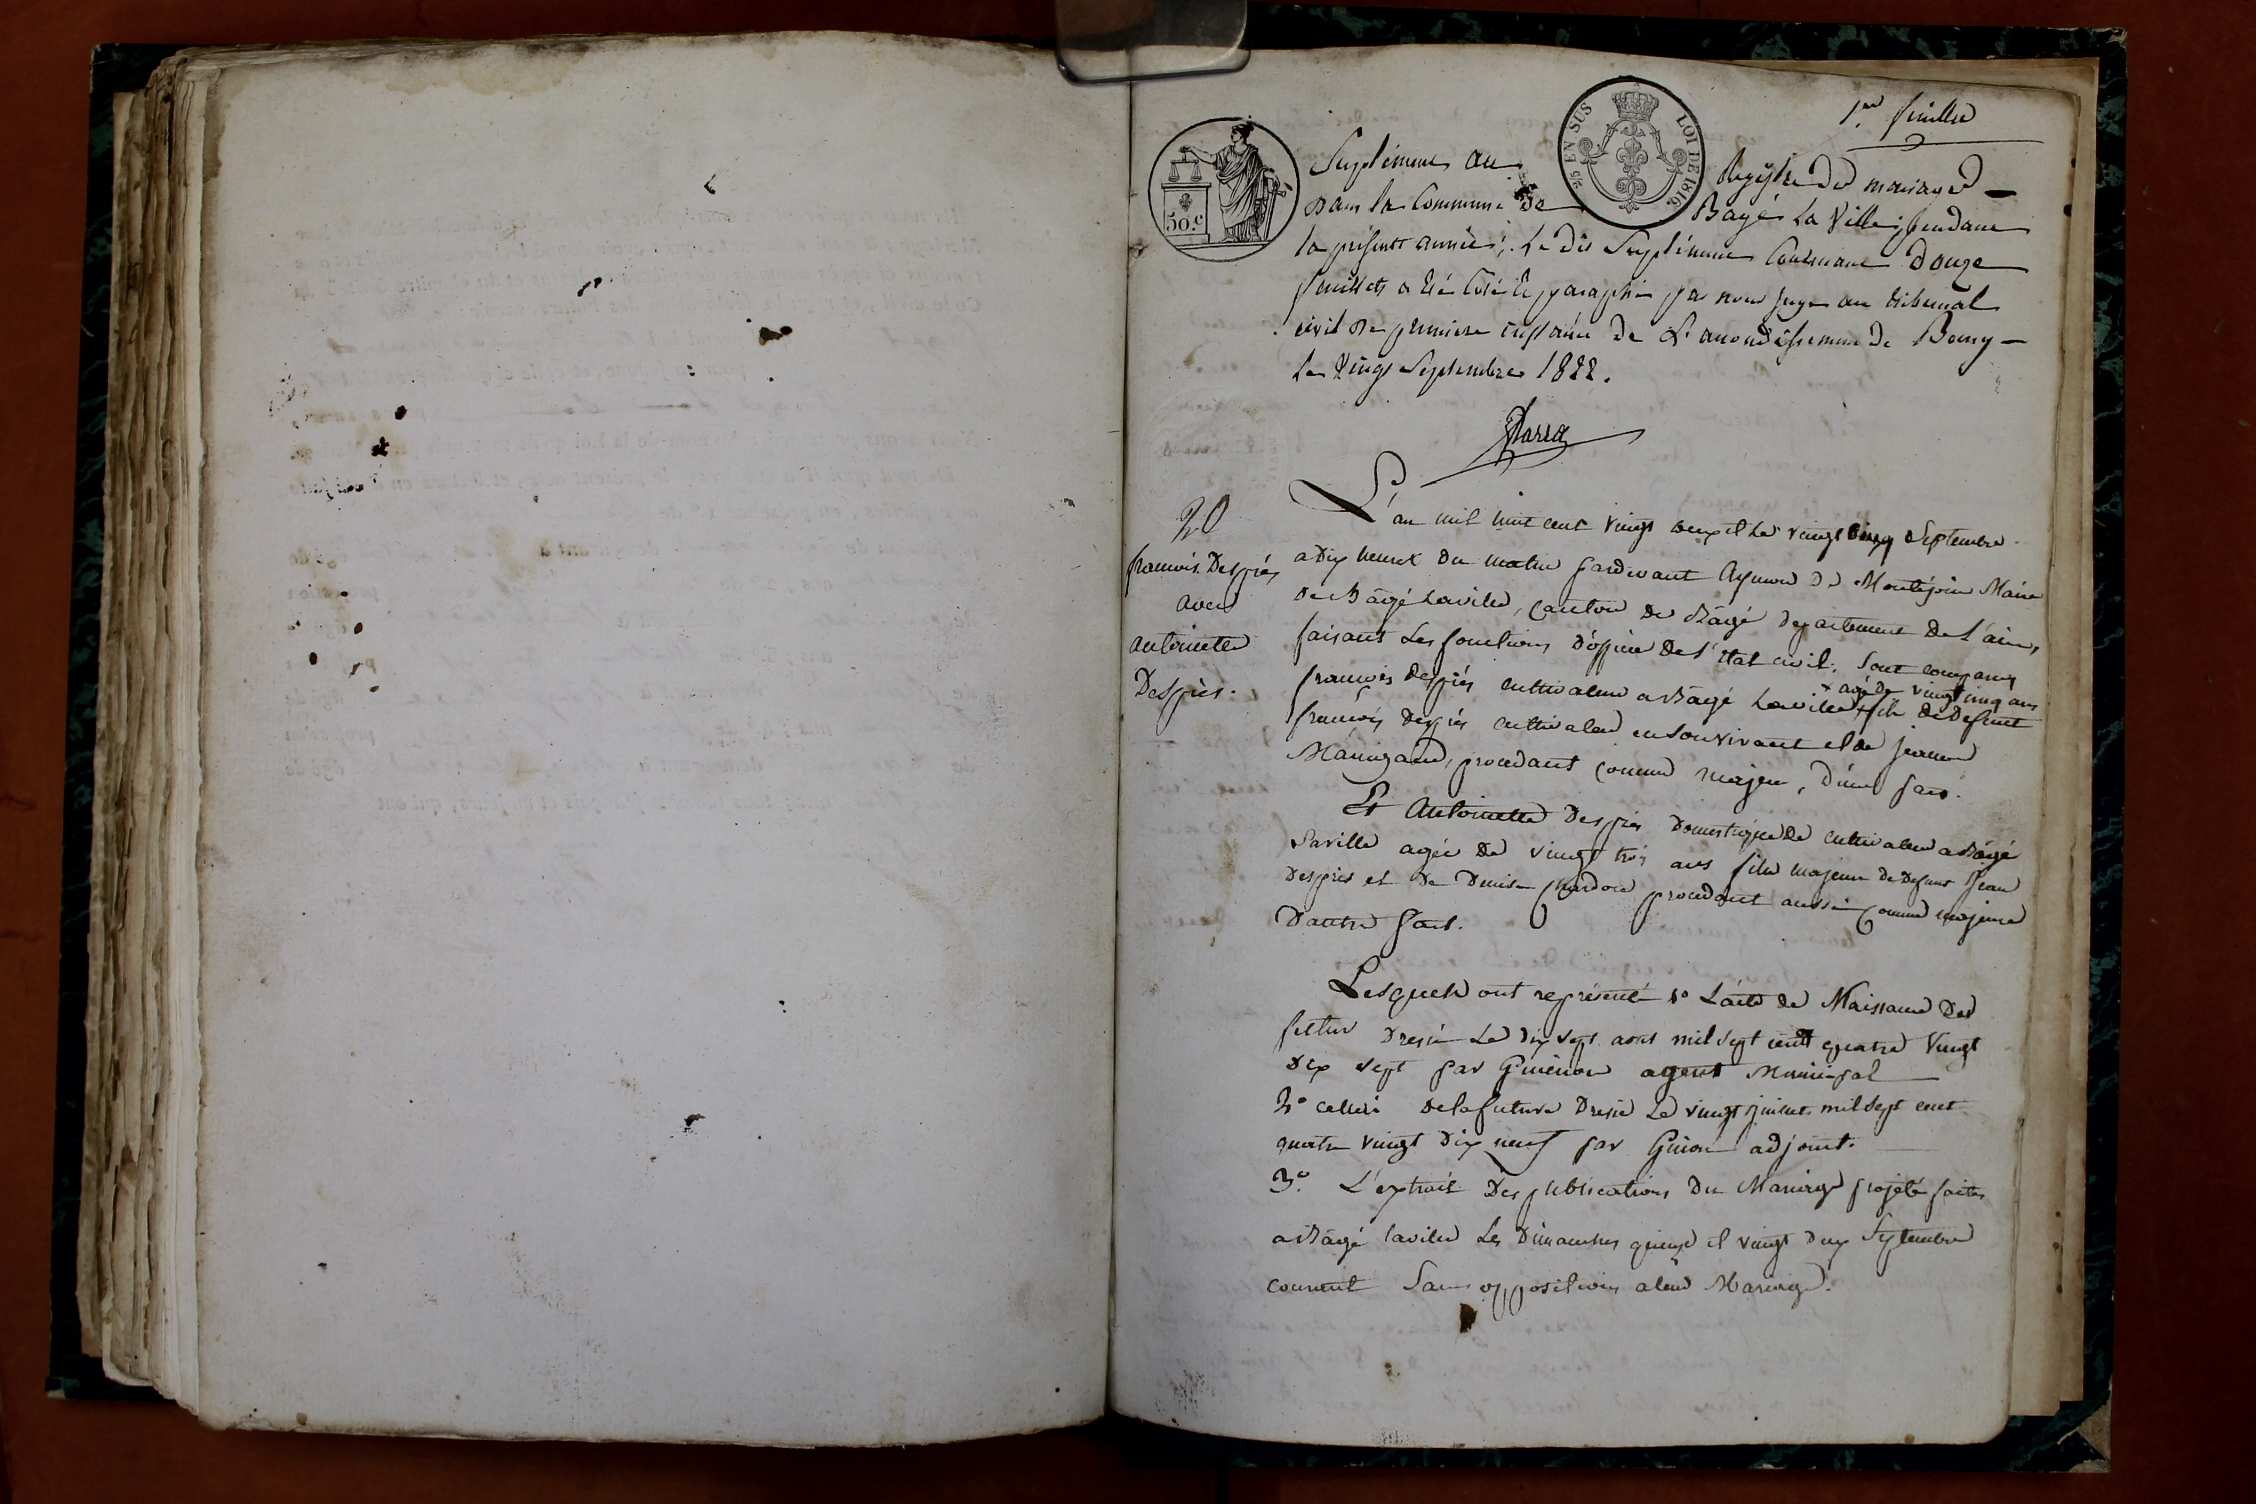 1er feuillet
50.c
5/c EN SUS LOI DE 1816.
Suplément au Registre des mariages
dans la Commune de Bagé la Ville pendant
la présente année; le dit Suplément Contenant douze
feuillets a été Coté et paraphé par nous juge au tribunal
civil de premiere instance de L'arrondissement de Bourg
le vingt Septembre 1822.
20
francois Despiés
avec
antoinette
Despiès.
L'an mil huit cent vingt deux et le vingt cinq Septembre
a dix heures du matin pardevant Aymon de Montépin Maire
de Bâgé Laville, canton de Bâgé departement de l'ain,
faisant Les fonctions d'officier de l'état civil, sont comparus
francois despiés cultivateur a Bâgé Laville + fils de Defunt
+ agé de vingt cinq ans
francois despiés cultivateur en son vivant et de jeanne
Manigand, procedant comme majeur, d'une part.
Et Antoinette Despiés Domestique de cultivateur a Bâgé
Laville agée de vingt trois ans fille majeure de defunt Jean
Despiés et de Denise procedant aussi comme majeure
D'autre part.
Lesquels ont représenté 1º L'acte de Naissance Des
futur Dressé Le dix sept aout mil sept cent quatre Vingt
dix sept par agent Municipal
2º celui de la future Dressé Le vingt juillet mil sept cent
quatre vingt dix neuf par adjoint.
3º. L'extrait Des publications Du Mariage projeté faites
a Bâgé laville Les Dimanches quinze et vingt deux Septembre
courant Sans opposition audit Mariage.